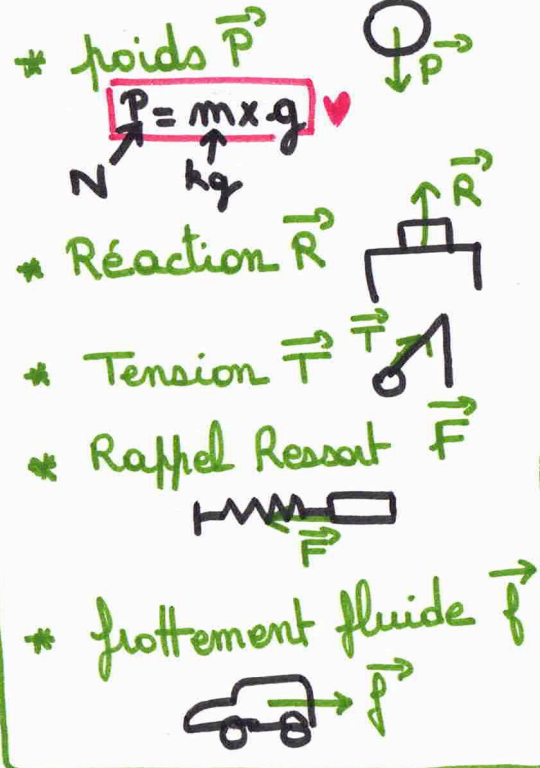 * poids P→
P→
P = m x g
N kg
* Réaction R→
R→
* Tension T→
T→
* Rappel Ressort F→
F→
* frottement fluide f→
f→